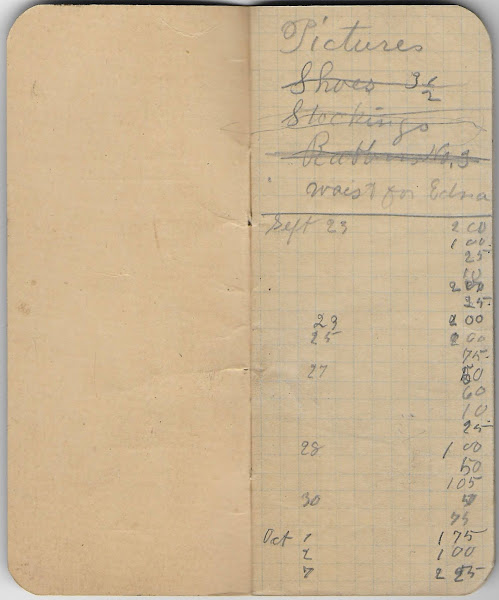 Pictures
Shoes 3 1/2
Stockings
Rubbers No. 3
waist for Edna
Sept 23 2 00
1 00
25
10
2 00
25
29 2 00
25 2 00
75
27 50
60
10
25
28 1 00
50
105
30
75
Oct 1 1 75
2 1 00
7 2 25